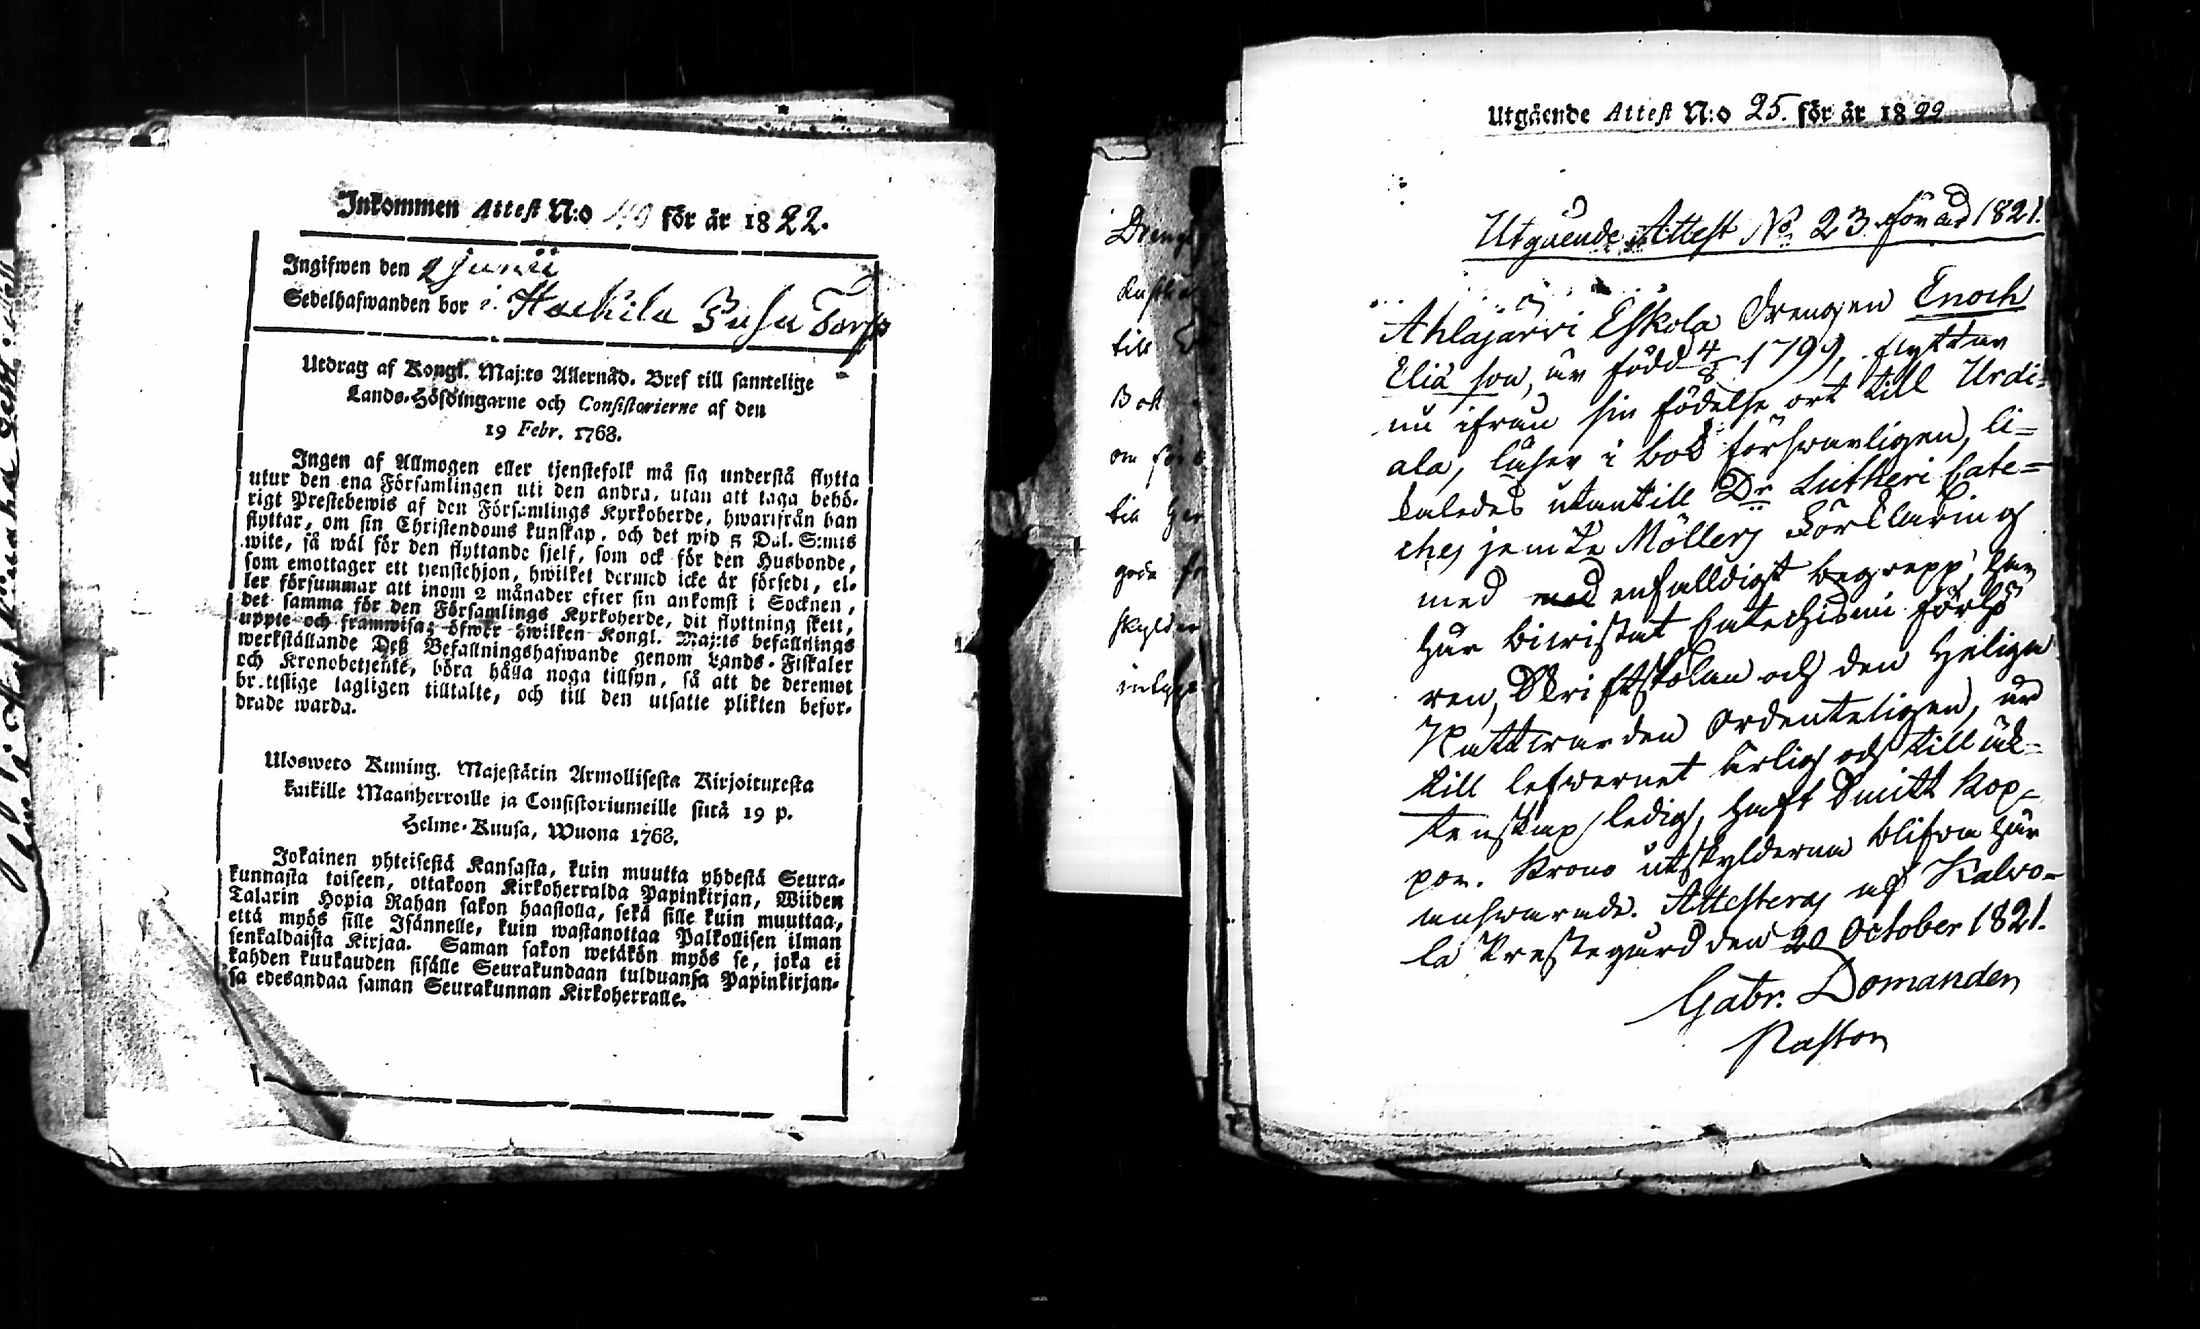 Inkommen Attest N:o 40 för år 1822.
Ingifwen den 2 Junii
Sedelhafwanden bor i Hackila Tarp
Utdrag af Kongl. Maj:ts Allernåd. Bref till samtelige
Lands-Höfdingarne och Consistorierne af den
19 Febr. 1768.
Ingen af Allmogen eller tjenstefolk må sig understå flytta
utur den ena Församlingen uti den andra, utan att taga behö-
rigt Prestebewis af den Församlings Kyrkoherde, hwarifrån han
flyttar, om sin Christendoms kunskap, och det wid 5 Dal. S:mts
wite, så wäl för den flyttande sjelf, som ock för den Husbonde,
som emottager ett tjenstehjon, hwilket dermed icke är försedt, el-
ler försummar att inom 2 månader efter sin ankomst i Socknen,
det samma för den Församlings Kyrkoherde, dit flyttning skett,
uppte och framwisa; öfwer hwilken Kongl. Maj:ts befallnings
werkställande Deß Befallningshafwande genom Lands-Fiskaler
och Kronobetjente, böra hålla noga tillsyn, så att de deremot
brottslige lagligen tilltalte, och till den utsatte plikten befor-
drade warda.
Ulosweto Kuning. Majestätin Armollisesta Kirjoituxesta
kaikille Maanherroille ja Consistoriumeille siitä 19 p.
Helme-Kuusa, Wuona 1768.
Jokainen yhteisestä Kansasta, kuin muutta yhdestä Seura-
kunnasta toiseen, ottakoon Kirkoherralda Papinkirjan, Wiiden
Talarin Hopia Rahan sakon haastolla, sekä sille kuin muuttaa,
että myös sille Isännelle, kuin wastanottaa Palkollisen ilman
senkaldaista Kirjaa. Saman sakon wetäkön myös se, joka ei
kahden kuukauden sisälle Seurakundaan tulduansa Papinkirjan-
sa edesandaa saman Seurakunnan Kirkoherralle.
till
Bok
om
till
goda
Utgående Attest N:o 25. för år 1822
Utgående Attest No 23 för år 1821.
Ahlajärvi Eskola Drengen Enoch
Elia son, är född 4/8 1799, flyttar
nu ifrån sin födelse ort till Urdi-
ala, läser i bok försvarligen, li-
kaledes utantill Dr Lutheri Cate-
ches jemte Möllers Förklaring
med enfalldigt begrepp, har
här bivistat Catechismi förhö
ren, Skriftskolan och den Heliga
Nattvarden Ordenteligen, är
till lefvernet ärlig och till äk-
tenskap ledig, haft Smitt kop-
por. Krono utskylderna blifva här
ansvarade. Attesteras af Kalvo-
la Prestegård den 20 October 1821.
Gabr. Domander
Pastor